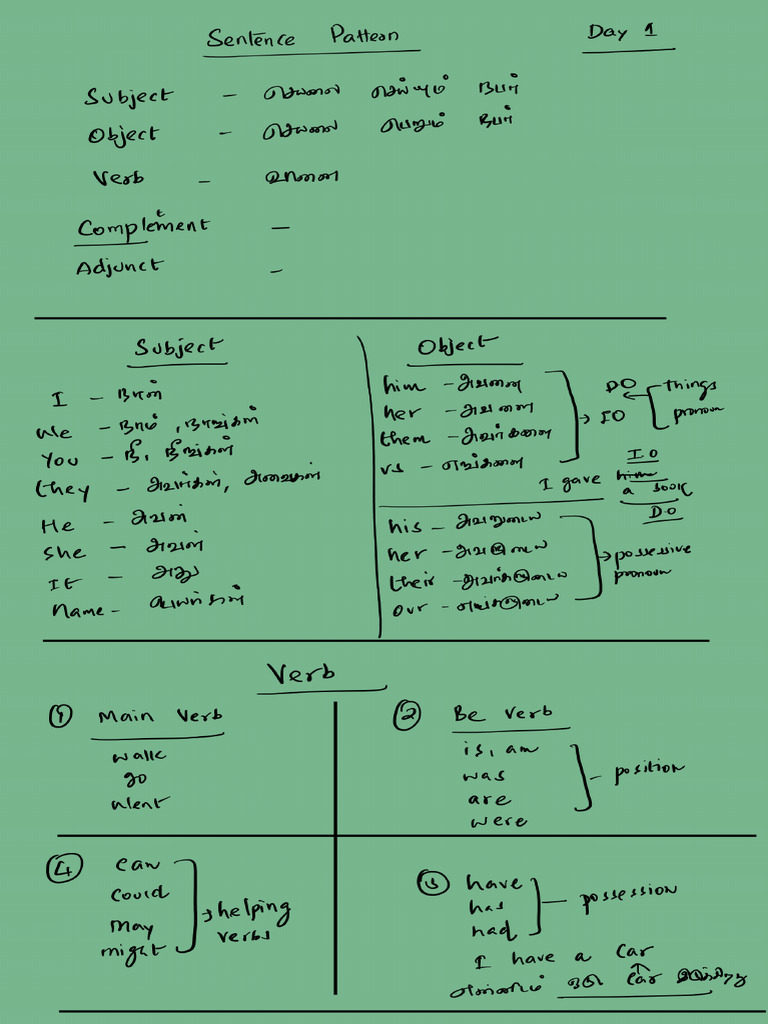 Sentence Pattern
Day 1
Subject - செயலை செய்யும் நபர்
Object - செயலை பெறும் நபர்
Verb -
Complement -
Adjunct -
Subject
I - நான்
We - நாம், நாங்கள்
You - நீ, நீங்கள்
they - அவர்கள், அவைகள்
He - அவன்
She - அவள்
It - அது
Name - பெயர்கள்
Object
him - அவனை
her - அவளை
them - அவர்களை
us - எங்களை
DO
IO
things
pronoun
IO
I gave him
a book
DO
his - அவனுடைய
her - அவளுடைய
their - அவர்களுடைய
our - எங்களுடைய
possessive
pronoun
Verb
1 Main Verb
walk
go
went
2 Be Verb
is, am
was
are
were
position
4 can
could
may
might
helping
verbs
3 have
has
had
possession
I have a car
என்னிடம் ஒரு car இருக்கிறது